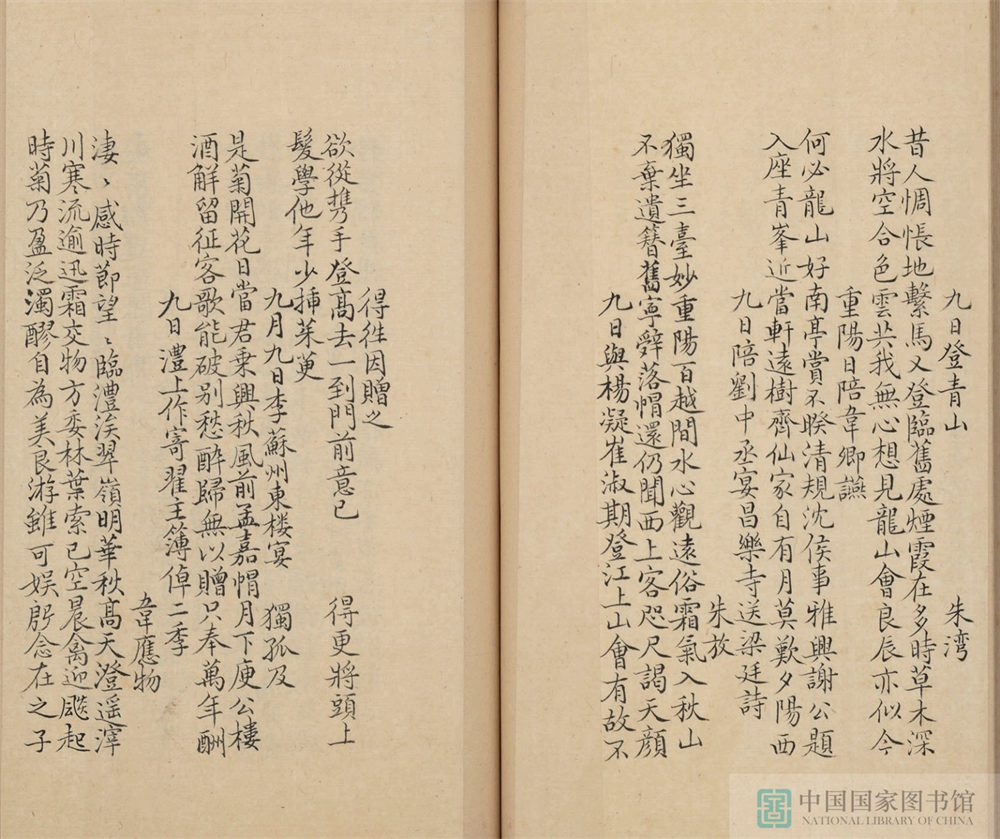 九日登青山
朱湾
昔人惆悵地繫馬又登臨舊處煙霞在多時草木深
水將空合色雲共我無心想見龍山會良辰亦似今
重陽日陪韋卿讌
何必龍山好南亭賞不暌清規沈侯事雅興謝公題
入座青峯近當軒遠樹齊仙家自有月莫歎夕陽西
九日陪劉中丞宴昌樂寺送梁廷詩
朱放
獨坐三臺妙重陽百越間水心觀遠俗霜氣入秋山
不棄遺簪舊寧辭落帽還仍聞西上客咫尺謁天顏
九日與楊凝崔淑期登江上山會有故不
得徃因贈之
欲從攜手登高去一到門前意已 得更將頭上
髮學他年少插茱萸
九月九日李蘇州東楼宴
獨孤及
是菊開花日當君乗興秋風前孟嘉帽月下庾公樓
酒解留征客歌能破别愁醉歸無以贈只奉萬年酬
九日澧上作寄翟主簿倬二季
韋應物
淒〻感時節望〻臨澧涘翠嶺明華秋高天澄遥滓
川寒流逾迅霜交物方委林葉索已空晨禽迎飈起
時菊乃盈泛濁醪自為美良游雖可娱𣪞念在之子
中国国家图书馆
NATIONAL LIBRARY OF CHINA